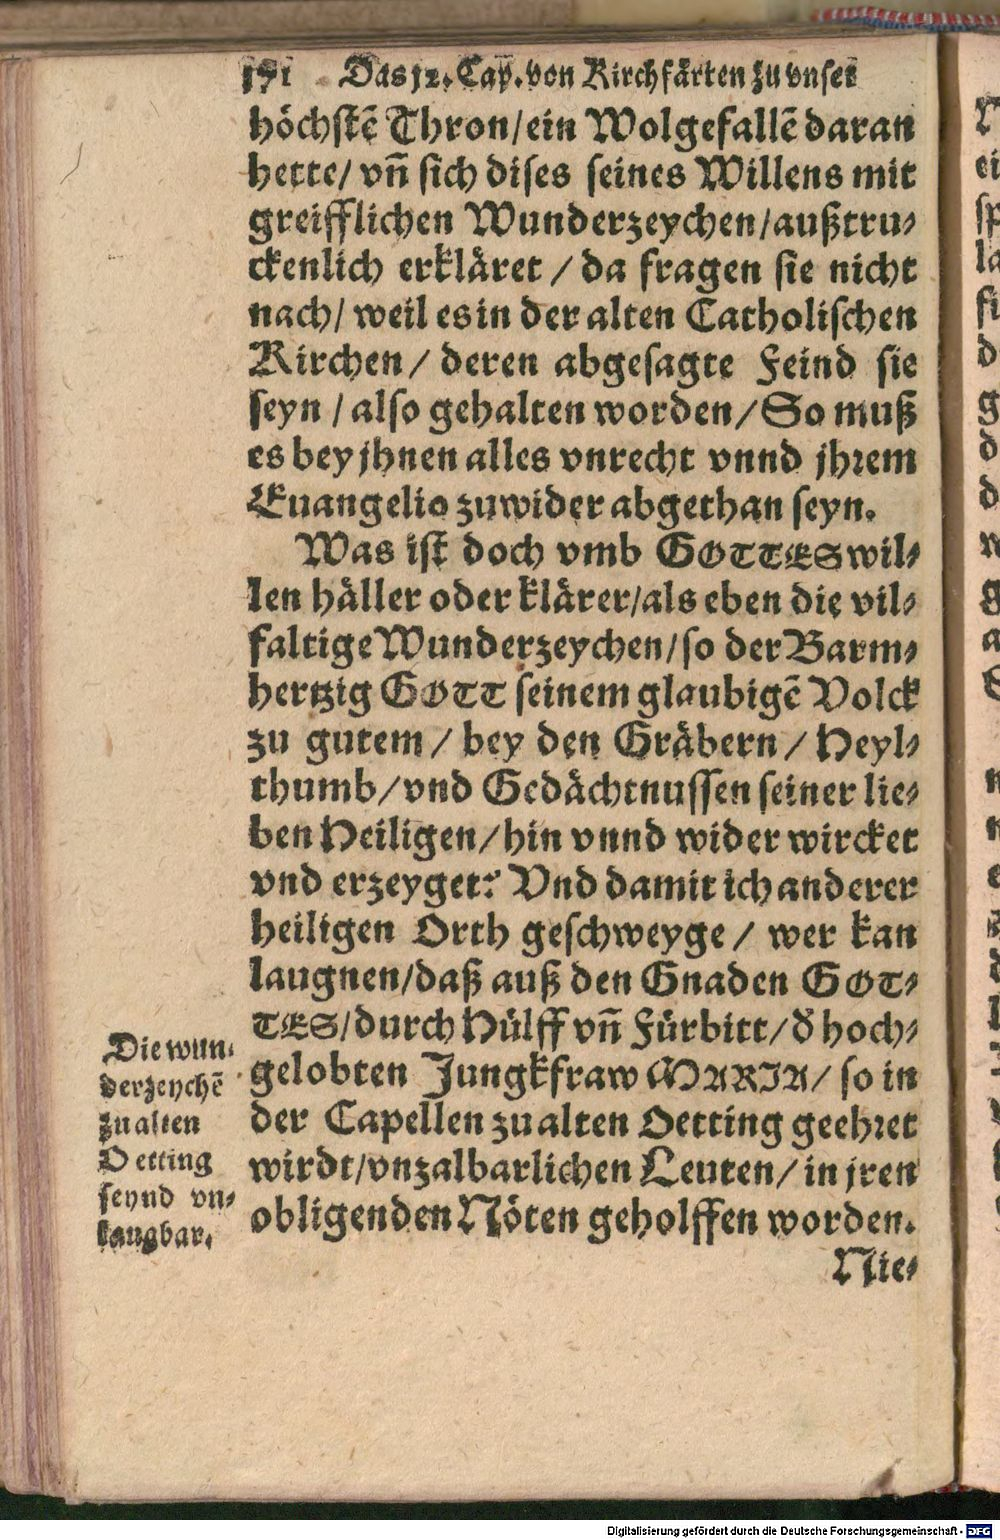 171 Das 12. Cap. von Kirchfärten zu vnser
höchstē Thron/ein Wolgefallē daran
hette/ vñ sich dises seines Willens mit
greifflichen Wunderzeychen/außtru⸗
ckenlich erkläret / da fragen sie nicht
nach/ weil es in der alten Catholischen
Kirchen/ deren abgesagte Feind sie
seyn / also gehalten worden/So muß
es bey jhnen alles vnrecht vnnd jhrem
Euangelio zuwider abgethan seyn.
Was ist doch vmb GOTTES wil⸗
len häller oder klärer/als eben die vil⸗
faltige Wunderzeychen/so der Barm⸗
hertzig GOTT seinem glaubigē Volck
zu gutem / bey den Gräbern / Heyl⸗
thumb/vnd Gedächtnussen seiner lie⸗
ben Heiligen/hin vnnd wider wircket
vnd erzeyget? Vnd damit ich anderer
heiligen Orth geschweyge / wer kan
laugnen/daß auß den Gnaden GOT⸗
TES/durch Hülff vñ Fürbitt/ð hoch⸗
gelobten Jungkfraw MARIA/ so in
der Capellen zu alten Oetting geehret
wirdt/vnzalbarlichen Leuten/ in jren
obligenden Nöten geholffen worden.
Nie⸗
Die wun⸗
derzeychē
zu alten
Oetting
seynd vn⸗
laugbar.
Digitalisierung gefördert durch die Deutsche Forschungsgemeinschaft - DFG